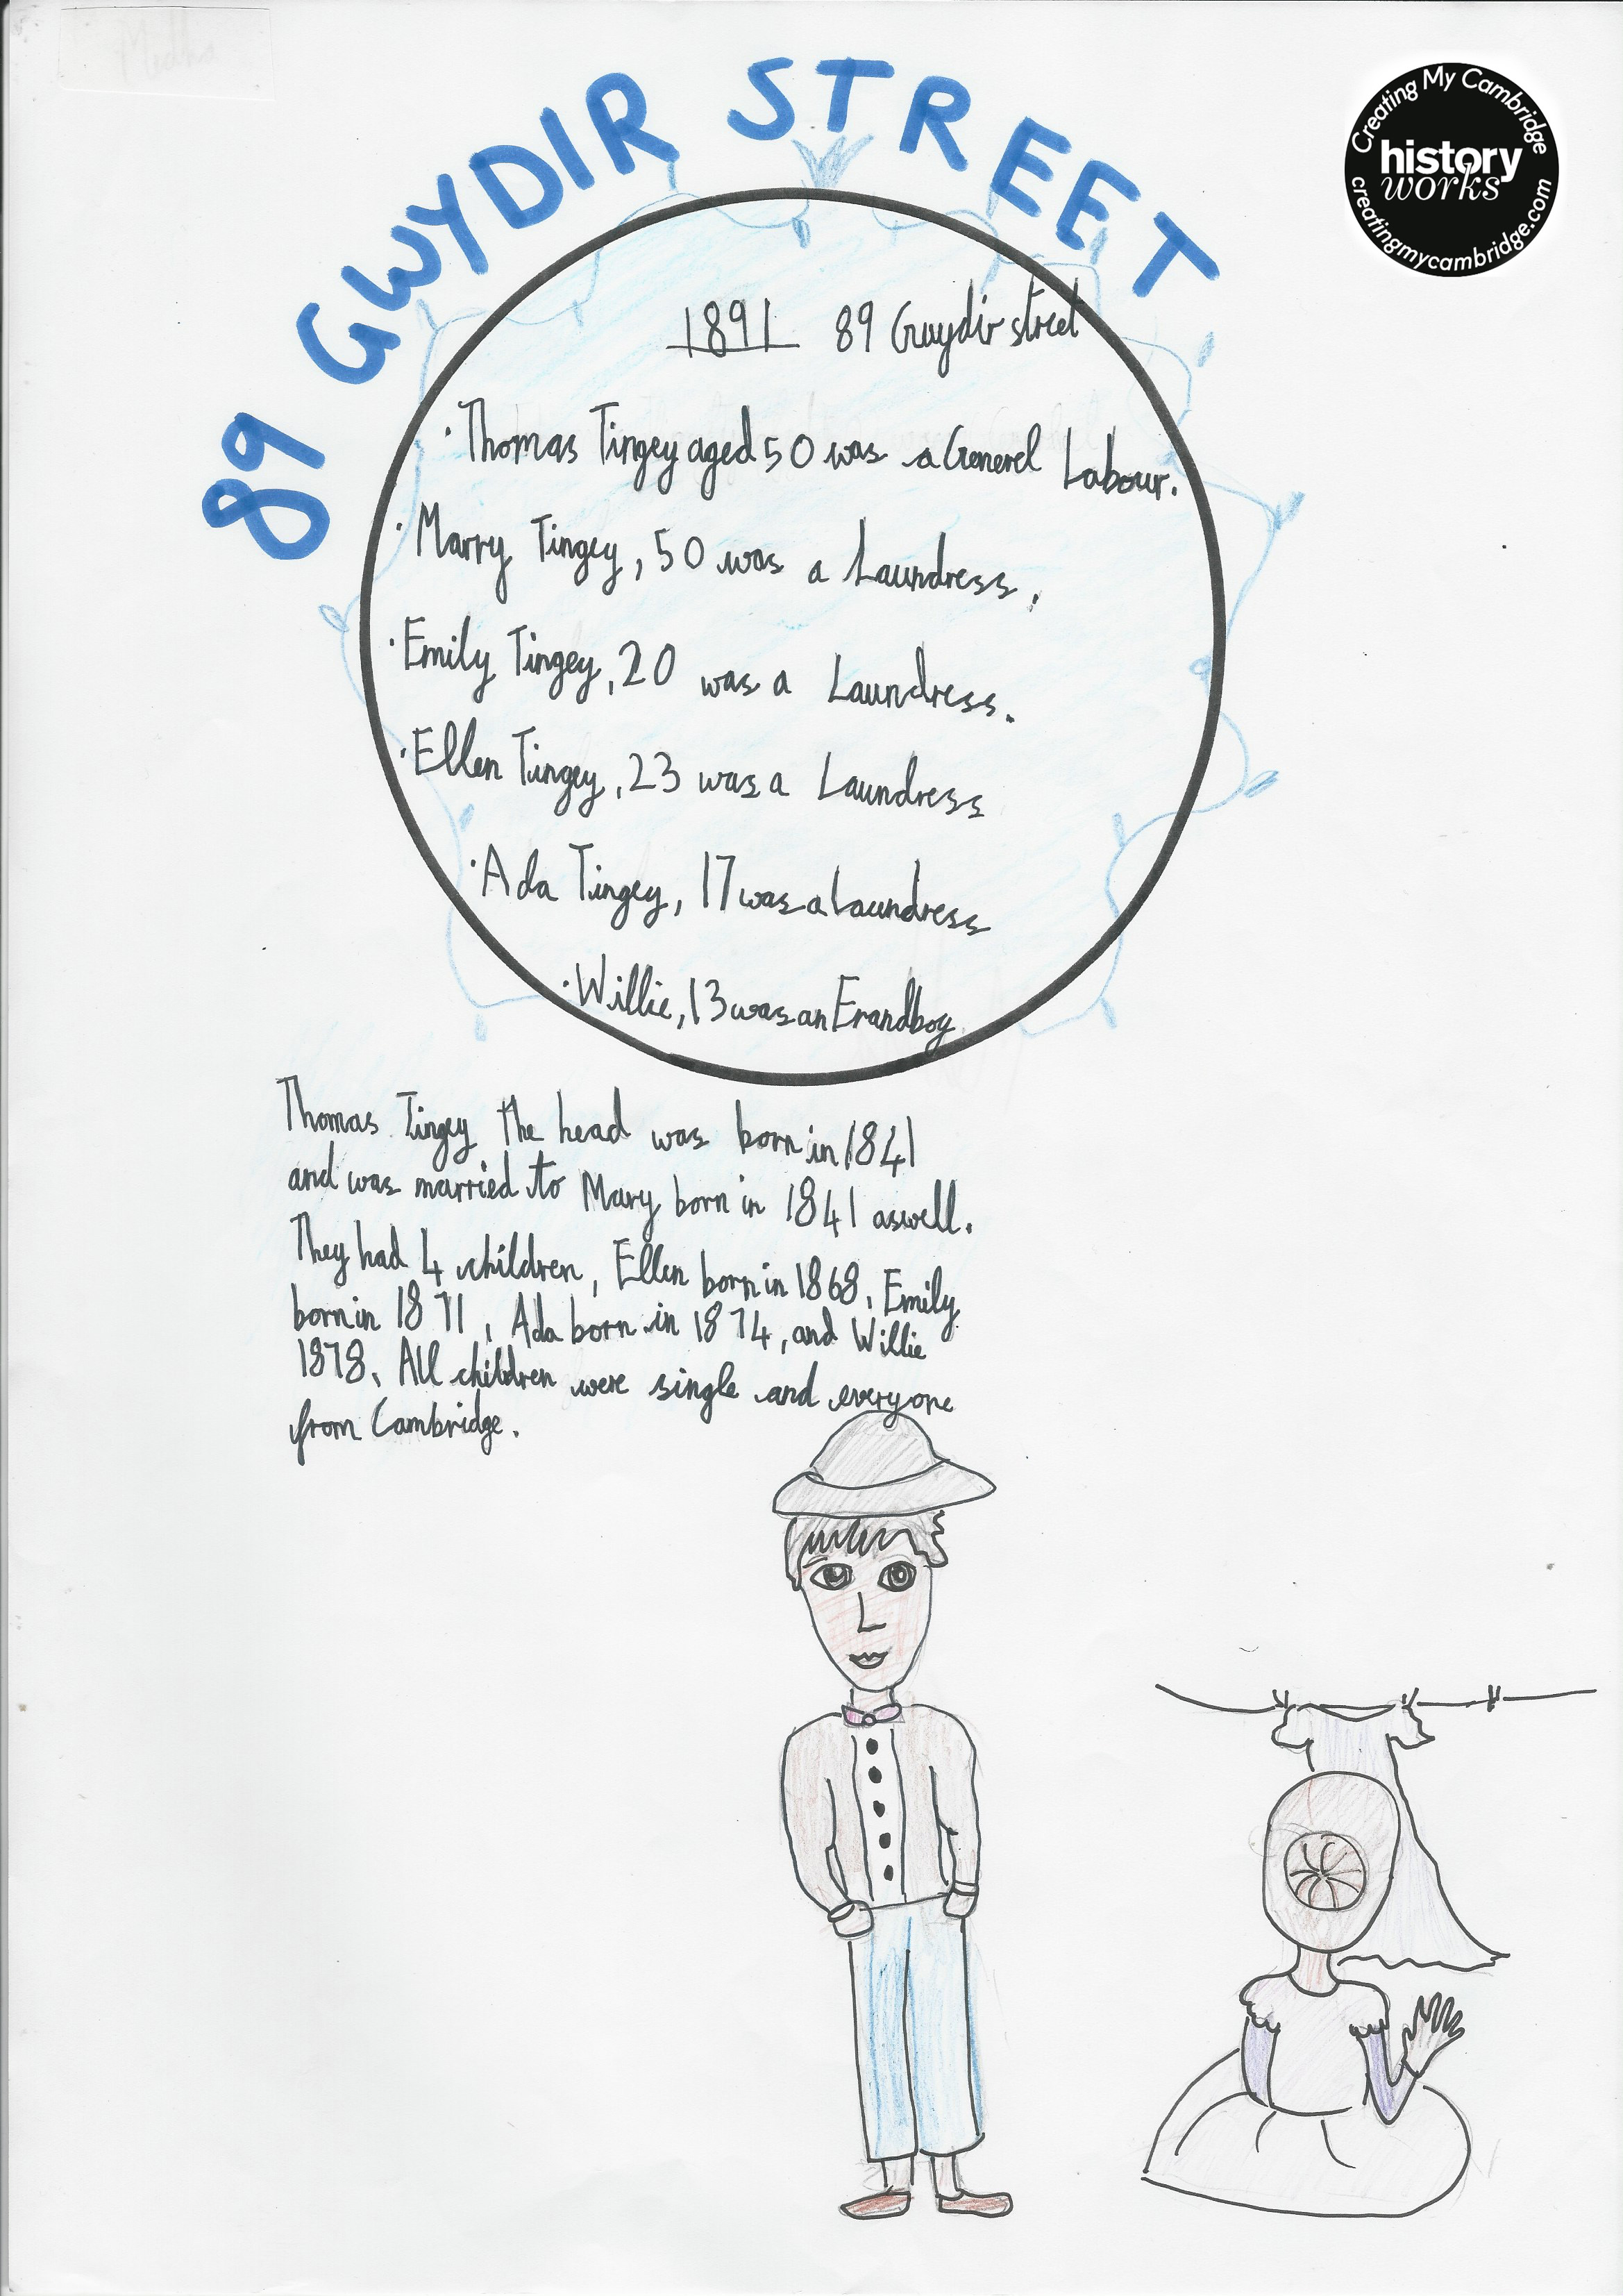 89 GWYDIR STREET
Creating My Cambridge
history
works
creatingmycambridge.com
1891 89 Gwydir street
·Thomas Tingey aged 50 was a Generel Labour.
·Marry Tingey, 50 was a Laundress.
·Emily Tingey, 20 was a Laundress.
·Ellen Tingey, 23 was a Laundress
·Ada Tingey, 17 was a Laundress
·Willie, 13 was an Erandboy
Thomas Tingey the head was born in 1841
and was married to Mary born in 1841 aswell.
They had 4 children, Ellen born in 1868, Emily
born in 1871, Ada born in 1874, and Willie
1878. All children were single and everyone
from Cambridge.